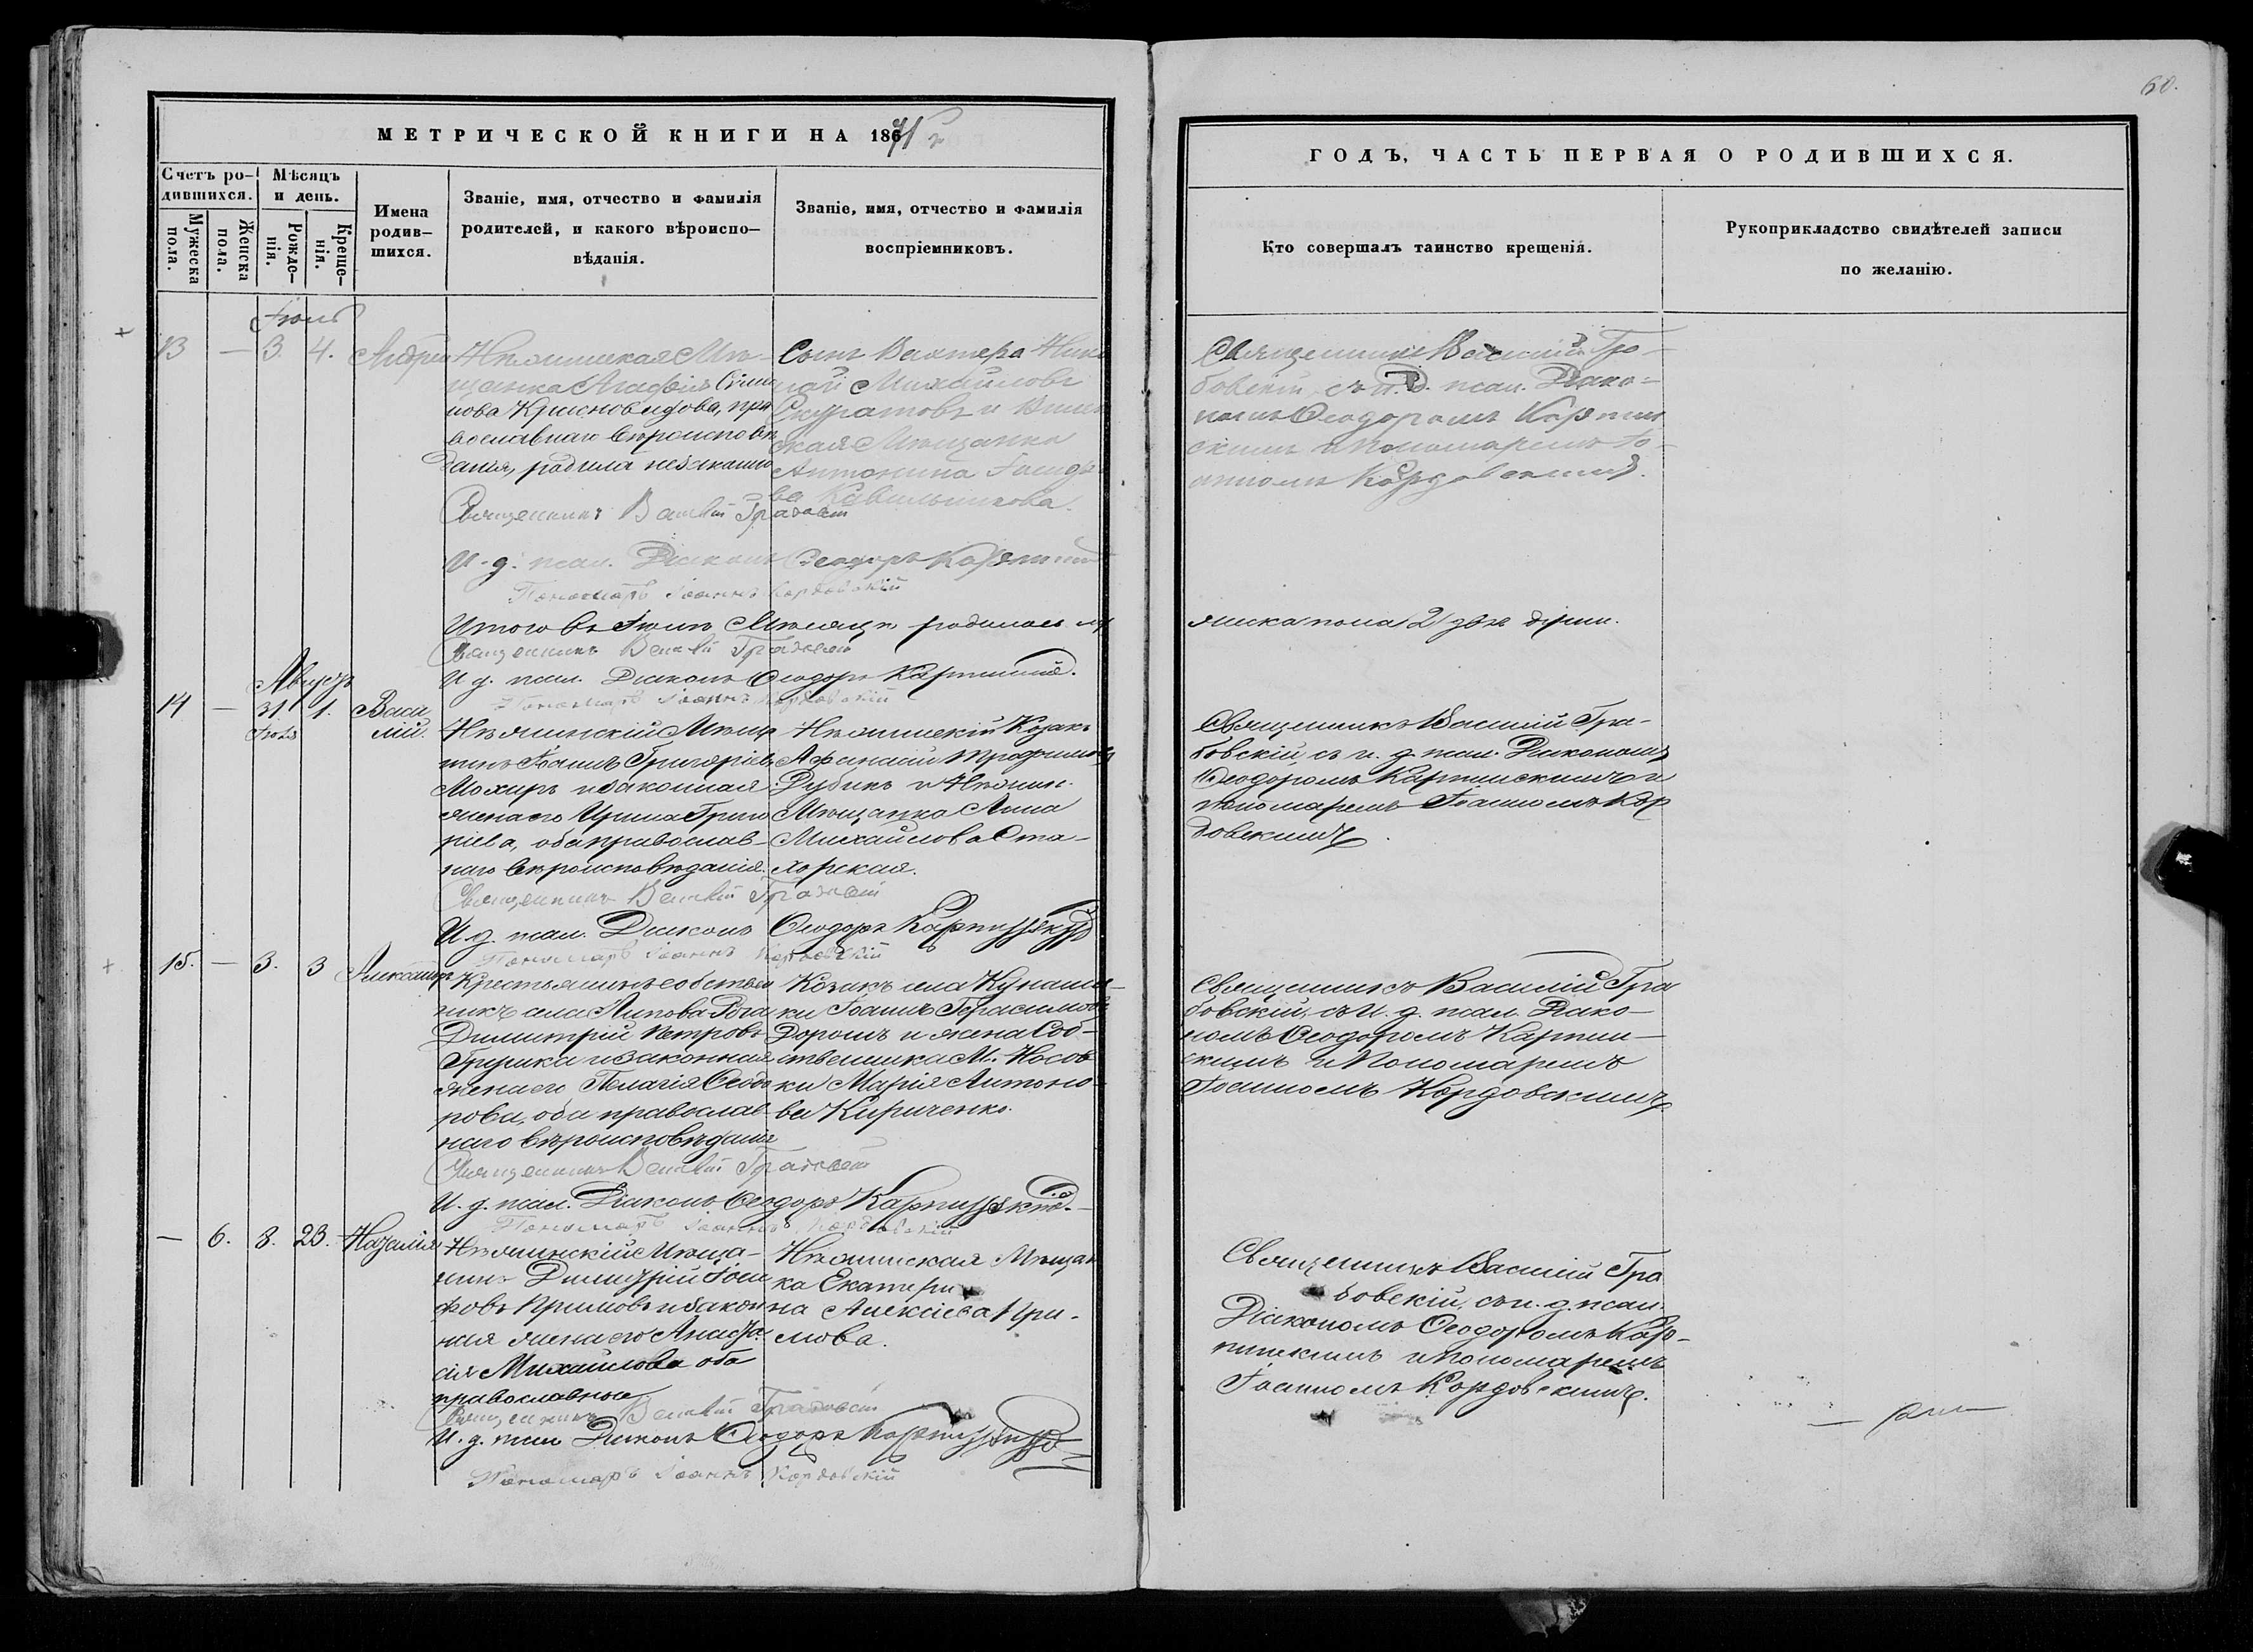 60.
МЕТРИЧЕСКОЙ КНИГИ НА 1871 г
ГОДЪ, ЧАСТЬ ПЕРВАЯ О РОДИВШИХСЯ.
Счетъ ро-
дившихся.
Мужеска
пола.
Женска
пола.
Мѣсяцъ
и день.
Рожде-
нія.
Креще-
нія.
Имена
родив-
шихся.
Званіе, имя, отчество и фамилія
родителей, и какого вѣроиспо-
вѣданія.
Званіе, имя, отчество и фамилія
воспріемниковъ.
Кто совершалъ таинство крещенія.
Рукоприкладство свидѣтелей записи
по желанію.
13 — 3. 4. Андрей
Нѣжинская Мѣ-
щанка Агафія
нова
вославнаго вѣроисповѣ
данія, родила незаконно
Сынъ Вахтера Нико
лай Михайловъ
Скуратовъ и
ская Мѣщанка
Антонина
ва
Священникъ Василій Гра-
бовскій, съ и. д. псал. Діако-
номъ Ѳеодоромъ Карпин
скимъ и Пономаремъ Іо-
анномъ Кордовскимъ.
Священникъ Василій Грабовскій
И. д. псал. Діаконъ Ѳеодоръ Карпинскій
Пономарь Іоаннъ Кордовскій
Итого въ Мѣсяцѣ родилось
женска пола 2 двѣ души.
Священникъ Василій Грабовскій
И. д. псал. Діаконъ Ѳеодоръ Карпинскій.
Пономарь Іоаннъ Кордовскій
Августъ
14 — 31. 1. Васи
лій.
Нѣжинскій Мѣща
нинъ Іоаннъ Григоріевъ
Мохиръ и законная
жена его Ирина Григо
ріева, оба православ-
наго вѣроисповѣданія.
Нѣжинскій Козакъ
Афанасій Трофимовъ
Рубинъ и Нѣжин.
Мѣщанка Анна
Михайлова Ста-
хорская.
Священникъ Василій Гра-
бовскій, съ и. д. псал. Діакономъ
Ѳеодоромъ Карпинскимъ и
пономаремъ Іоанномъ Кор
довскимъ.
Священникъ Василій Грабовскій
И. д. псал. Діаконъ Ѳеодоръ Карпинскій
Пономарь Іоаннъ Кордовскій
15. — 3. 3 Александръ
Крестьянинъ собствен
никъ села Липова Рога
Димитрій Петровъ
и законная
жена его Пелагія Ѳеодо
рова, оба православ
наго вѣроисповѣданія
Козакъ села Кунашов
ки Іоаннъ Герасимовъ
Дорошъ и жена Соб-
ственника М. Носов
ки Марія Антоно-
ва Кириченко.
Священникъ Василій Гра
бовскій, съ и. д. псал. Діако-
номъ Ѳеодоромъ Карпин-
скимъ и Пономаремъ
Іоанномъ Кордовскимъ
Священникъ Василій Грабовскій
И. д. псал. Діаконъ Ѳеодоръ Карпинскій.
Пономарь Іоаннъ Кордовскій
— 6. 8. 23. Наталія
Нѣжинскій Мѣща-
нинъ Димитрій Іоси
фовъ Примовъ и закон
ная жена его Анаста
сія Михайлова оба
православные
Нѣжинская Мѣщан
ка Екатери
на Алексіева При-
мова.
Священникъ Василій Гра
бовскій, съ и. д. псал.
Діакономъ Ѳеодоромъ Кар-
пинскимъ и Пономаремъ
Іоанномъ Кордовскимъ.
Священникъ Василій Грабовскій
И. д. псал Діаконъ Ѳеодоръ Карпинскій
Пономарь Іоаннъ Кордовскій